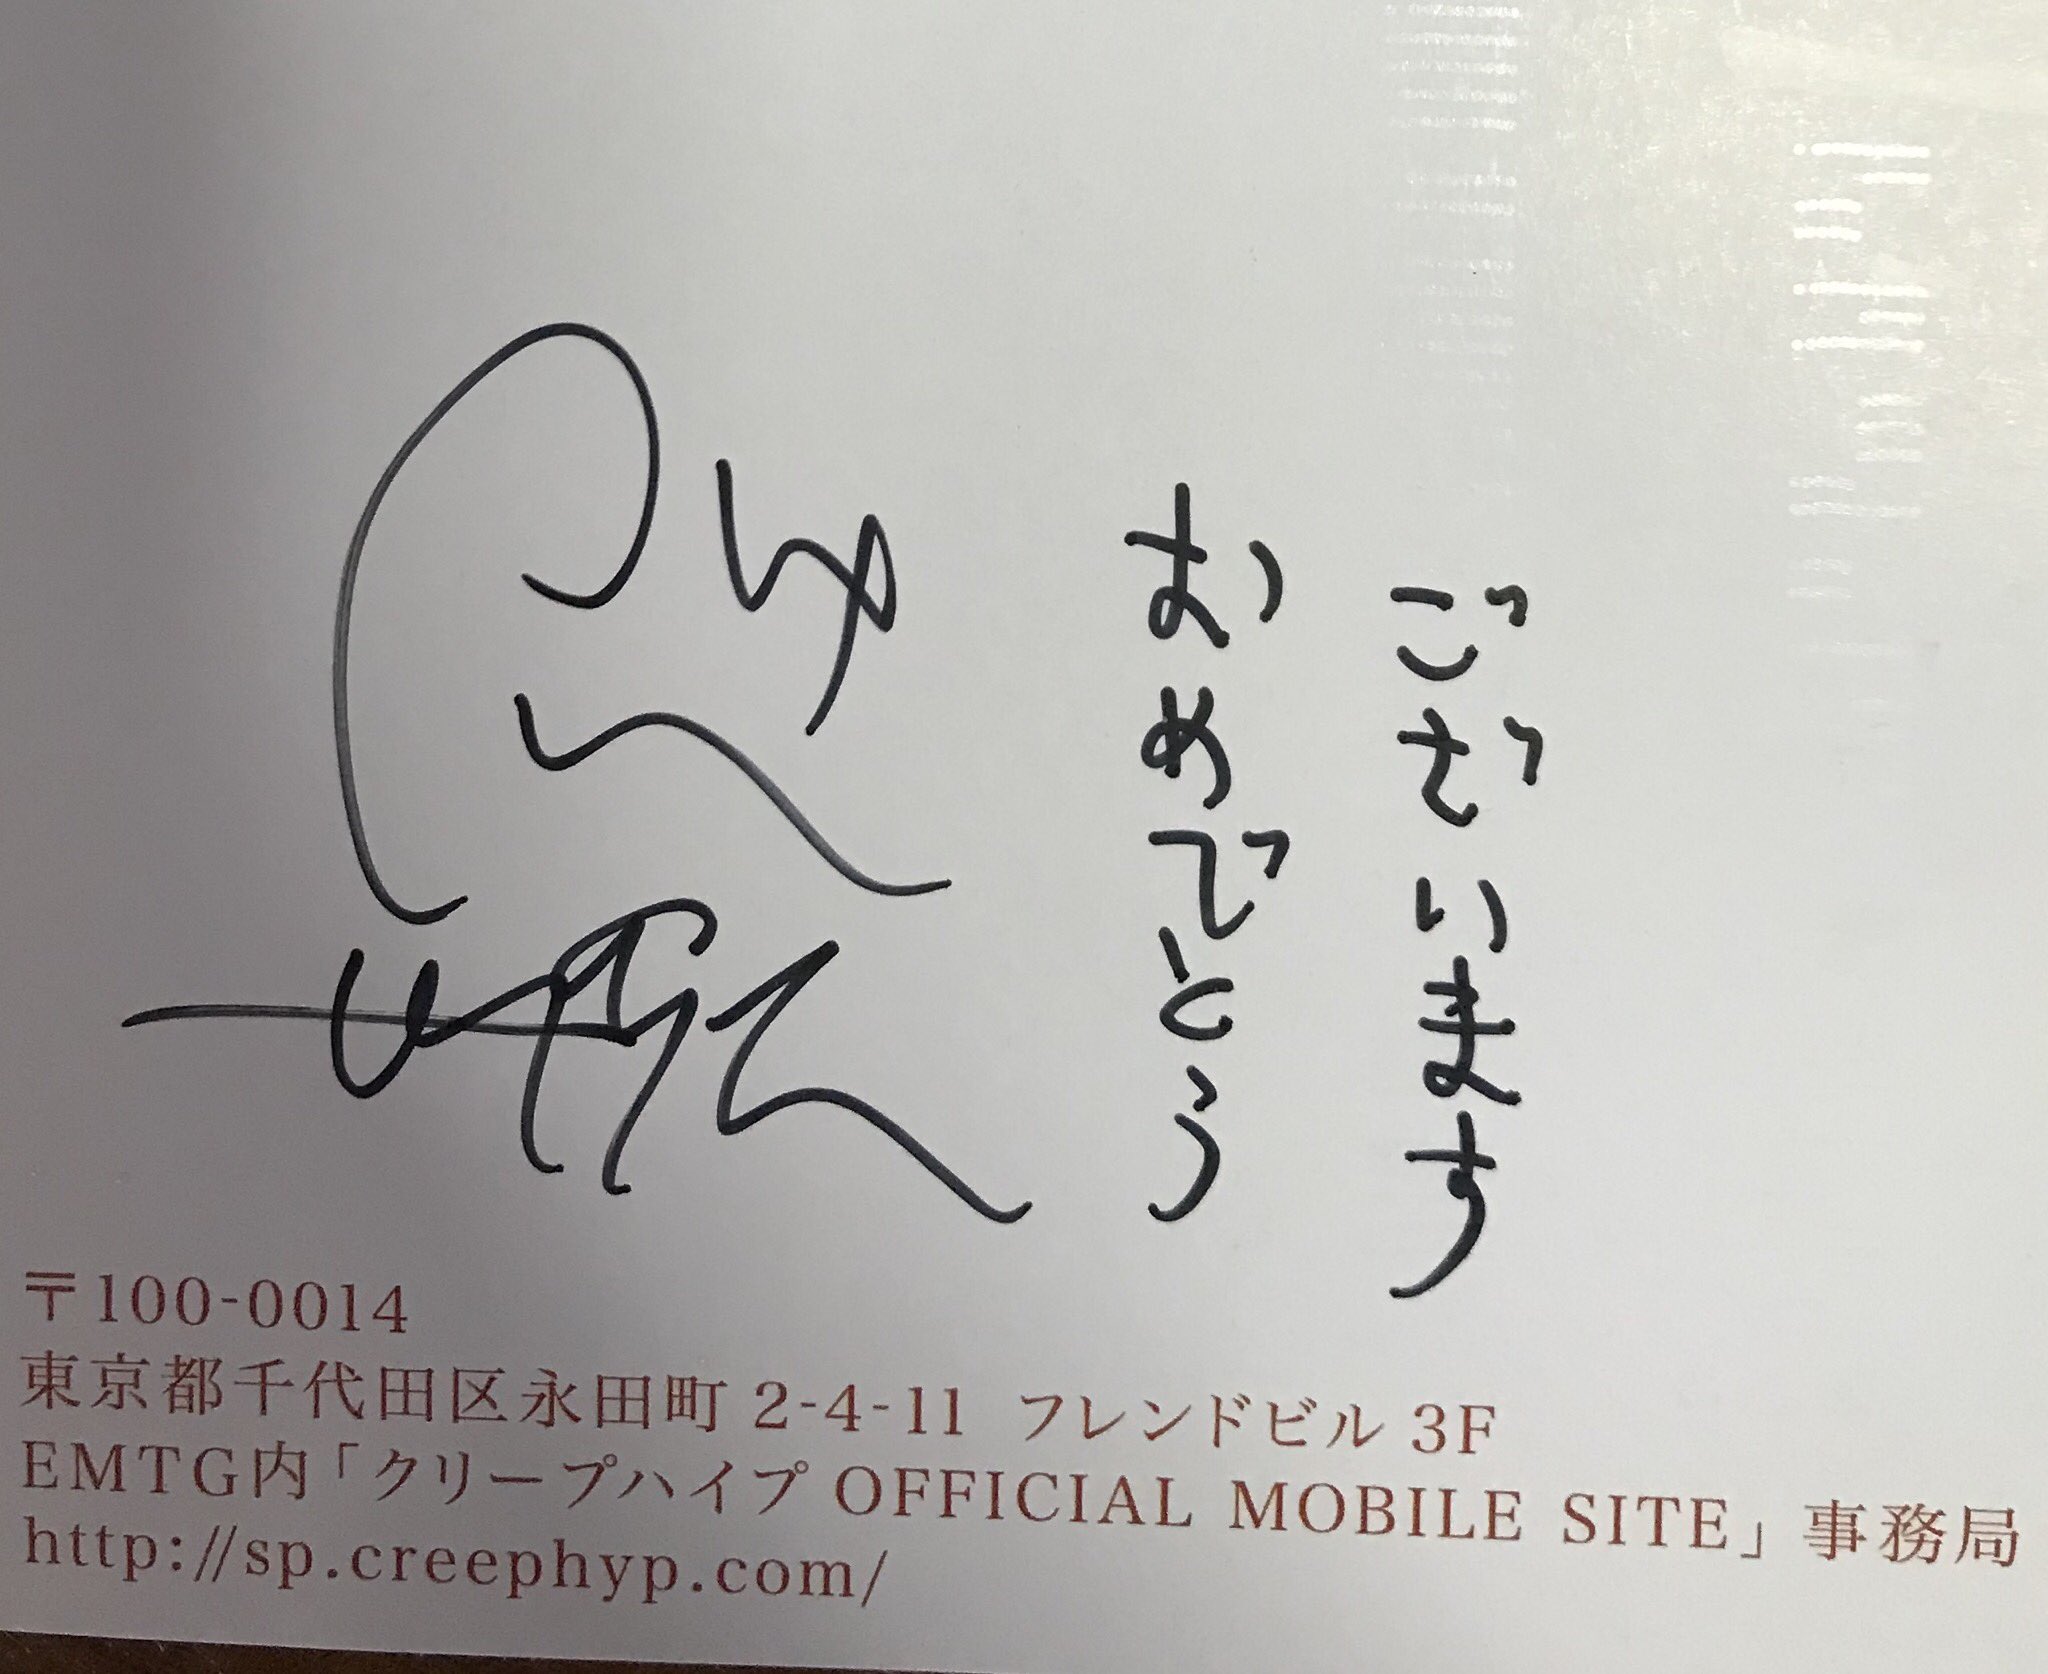 おめでとう
ございます
〒100-0014
東京都千代田区永田町 2-4-11 フレンドビル 3F
EMTG内「クリープハイプ OFFICIAL MOBILE SITE」事務局
http://sp.creephyp.com/